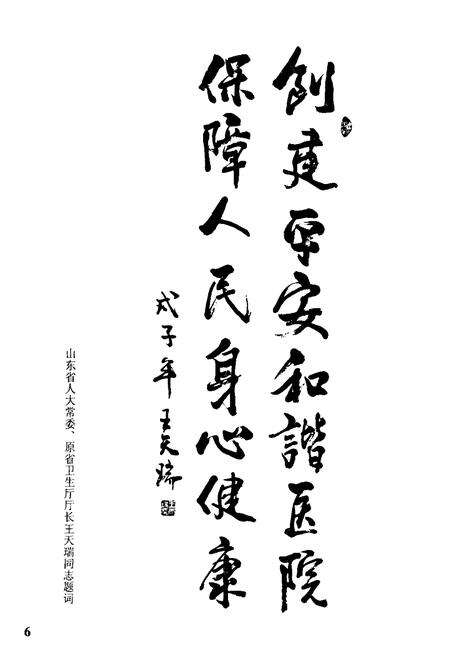 創建平安和諧医院
保障人民身心健康
戊子年 王天瑞
山东省人大常委、原省卫生厅厅长王天瑞同志题词
6